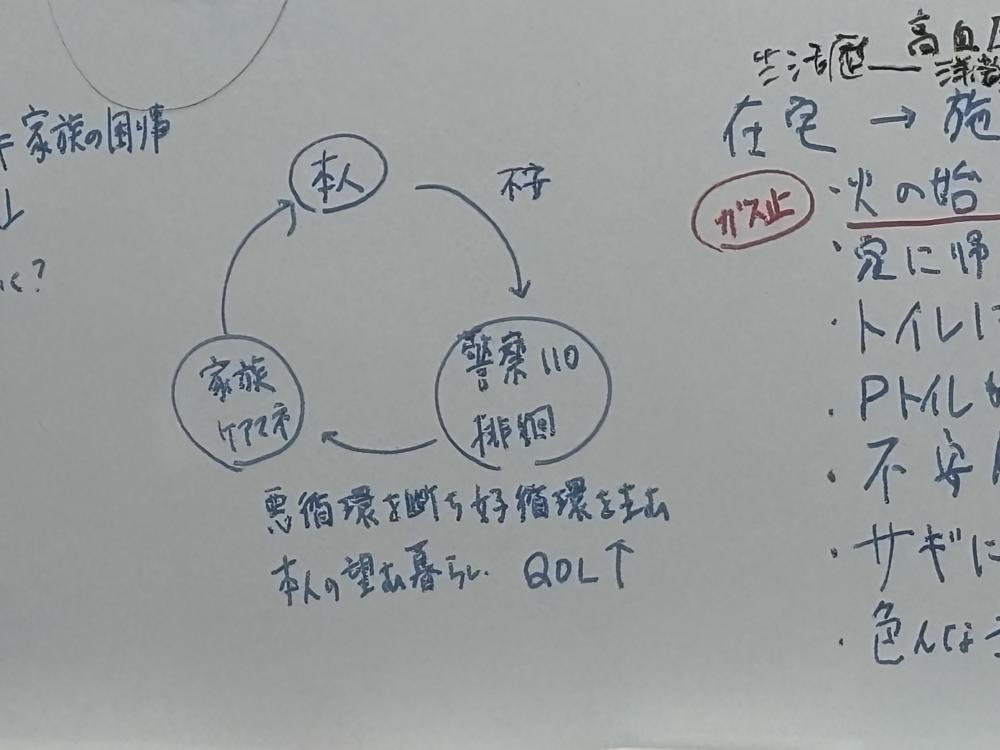 家族の困り事
↓
く?
本人
不安
警察110
徘徊
家族
ケアマネ
悪循環を断ち好循環を生む
本人の望む暮らし QOL↑
生活歴 — 高血
在宅 → 施
ガス止
・火の始
・家に帰
・トイレに
・Pトイレ
・不安
・サギに
・色んな